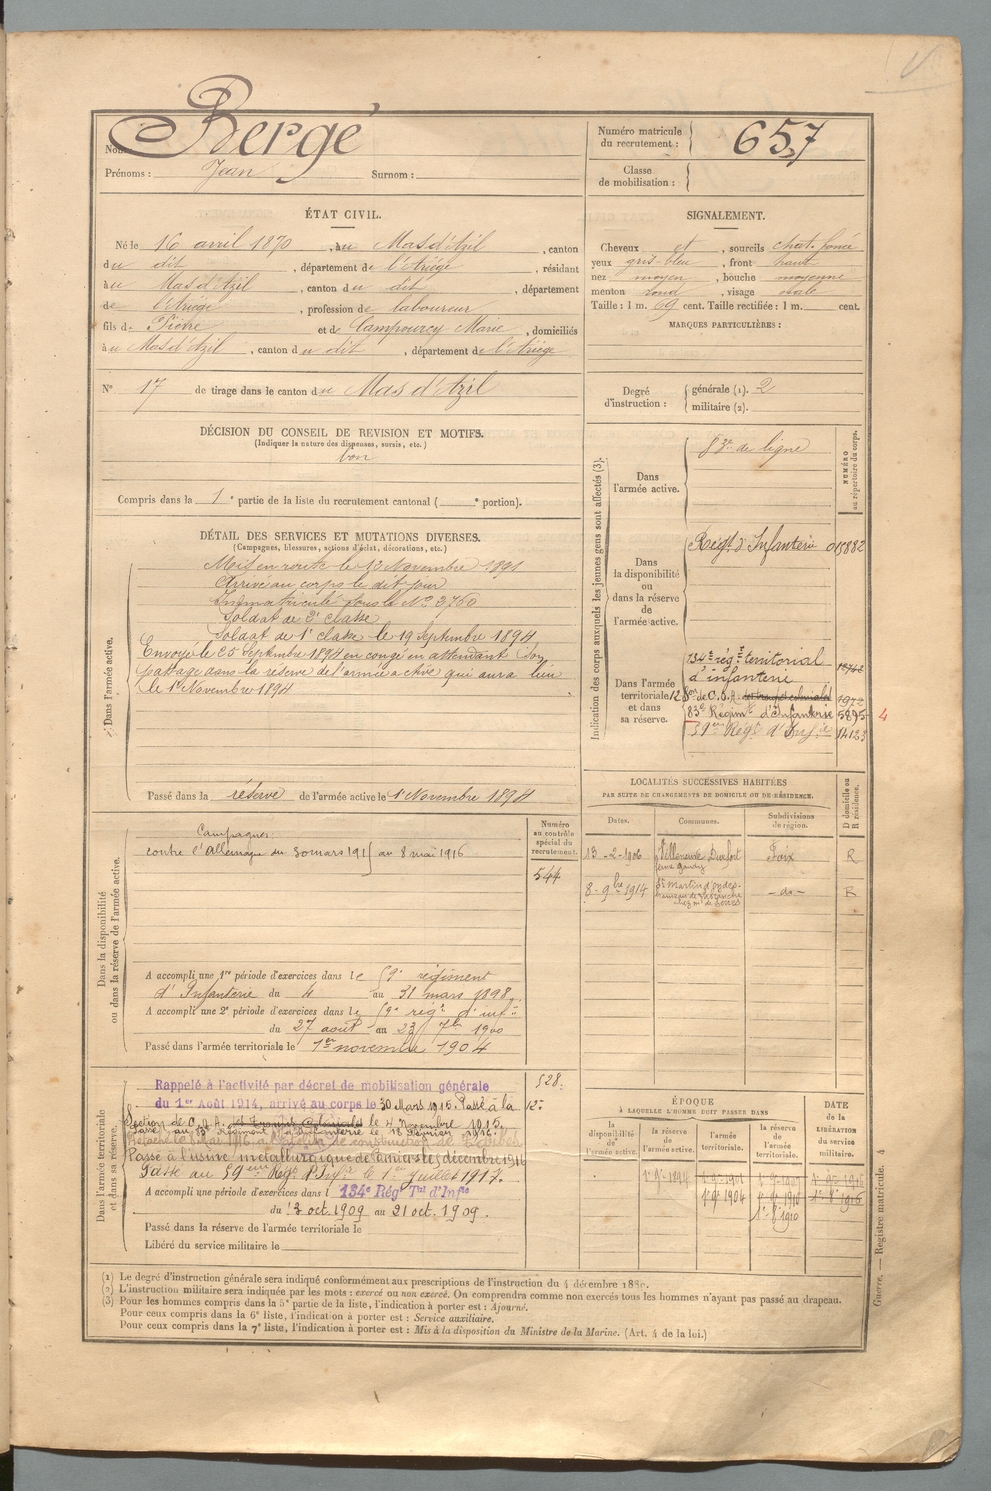 Nom : Bergé
Prénoms : Jean Surnom :
Numéro matricule du recrutement : 657
Classe de mobilisation :
ÉTAT CIVIL.
Né le 16 avril 1870, au Mas d'Azil, canton
du dit, département de l'Ariége, résidant
au Mas d'Azil, canton du dit, département
de l'Ariége, profession de laboureur
fils de Pierre et de Campourcy Marie, domiciliés
au Mas d'Azil, canton du dit, département de l'Ariége
N° 17 de tirage dans le canton du Mas d'Azil
SIGNALEMENT.
Cheveux et, sourcils chat. foncé
yeux gris-bleu, front haut
nez moyen, bouche moyenne
menton rond, visage ovale
Taille : 1 m. 69 cent. Taille rectifiée : 1 m. cent.
MARQUES PARTICULIÈRES :
Degré d'instruction : générale (1). 2
militaire (2).
DÉCISION DU CONSEIL DE REVISION ET MOTIFS.
(Indiquer la nature des dispenses, sursis, etc.)
bon
Compris dans la 1e partie de la liste du recrutement cantonal ( e portion).
DÉTAIL DES SERVICES ET MUTATIONS DIVERSES.
(Campagnes, blessures, actions d'éclat, décorations, etc.)
Dans l'armée active.
Mis en route le 12 Novembre 1891
Arrivé au corps le dit jour
Immatriculé sous le N° 3760
Soldat de 2e classe
Soldat de 1e classe le 19 Septembre 1894
Envoyé le 25 Septembre 1894 en congé en attendant son
passage dans la réserve de l'armée active qui aura lieu
le 1er Novembre 1894
Passé dans la réserve de l'armée active le 1 Novembre 1894
Indication des corps auxquels les jeunes gens sont affectés (3).
NUMÉRO au répertoire du corps.
Dans l'armée active.
83e de ligne
Dans la disponibilité ou dans la réserve de l'armée active.
Régt d'Infanterie 015882
Dans l'armée territoriale et dans sa réserve.
134e rég t territorial
d'infanterie
12 Son de C.O.A. 1972
83e Régimt d'Infanterie 5895 4
59eme Régt d'Inf.ie 14123
Dans la disponibilité ou dans la réserve de l'armée active.
Campagnes:
contre l'Allemagne du 30 mars 1915 au 8 mai 1916
Numéro au contrôle spécial du recrutement.
544
A accompli une 1re période d'exercices dans le 59e régiment
d'Infanterie du 4 au 31 mars 1898.
A accompli une 2e période d'exercices dans le 59e régt d'infie
du 27 août au 23 7bre 1900
Passé dans l'armée territoriale le 1er novembre 1904
LOCALITÉS SUCCESSIVES HABITÉES
PAR SUITE DE CHANGEMENTS DE DOMICILE OU DE RÉSIDENCE.
Dates. Communes. Subdivisions de région. D domicile ou R résidence.
13-2-1906 Villeneuve Durfort Foix R
8-9bre 1914 St Martin d'Oydes -do- R
Dans l'armée territoriale et dans sa réserve.
528.
Rappelé à l'activité par décret de mobilisation générale
du 1er Août 1914, arrivé au corps le 30 Mars 1915. Passé à la 12e
Section de C.O.A. le 4 Novembre 1915.
Passé au 83e Régiment d'Infanterie le
Passé à l'usine métallurgique de Pamiers le décembre 1916
Passé au 59eme Régt d'Infie le 1er Juillet 1917.
A accompli une période d'exercices dans l 134e Régt Tal d'Infie
du 13 oct. 1909 au 21 oct. 1909.
Passé dans la réserve de l'armée territoriale le
Libéré du service militaire le
ÉPOQUE
À LAQUELLE L'HOMME DOIT PASSER DANS
la disponibilité de l'armée active. la réserve de l'armée active. l'armée territoriale. la réserve de l'armée territoriale.
DATE de la LIBÉRATION du service militaire.
(1) Le degré d'instruction générale sera indiqué conformément aux prescriptions de l'instruction du 4 décembre 1889.
(2) L'instruction militaire sera indiquée par les mots : exercé ou non exercé. On comprendra comme non exercés tous les hommes n'ayant pas passé au drapeau.
(3) Pour les hommes compris dans la 5e partie de la liste, l'indication à porter est : Ajourné.
Pour ceux compris dans la 6e liste, l'indication à porter est : Service auxiliaire.
Pour ceux compris dans la 7e liste, l'indication à porter est : Mis à la disposition du Ministre de la Marine. (Art. 4 de la loi.)
Guerre. — Registre matricule. 4